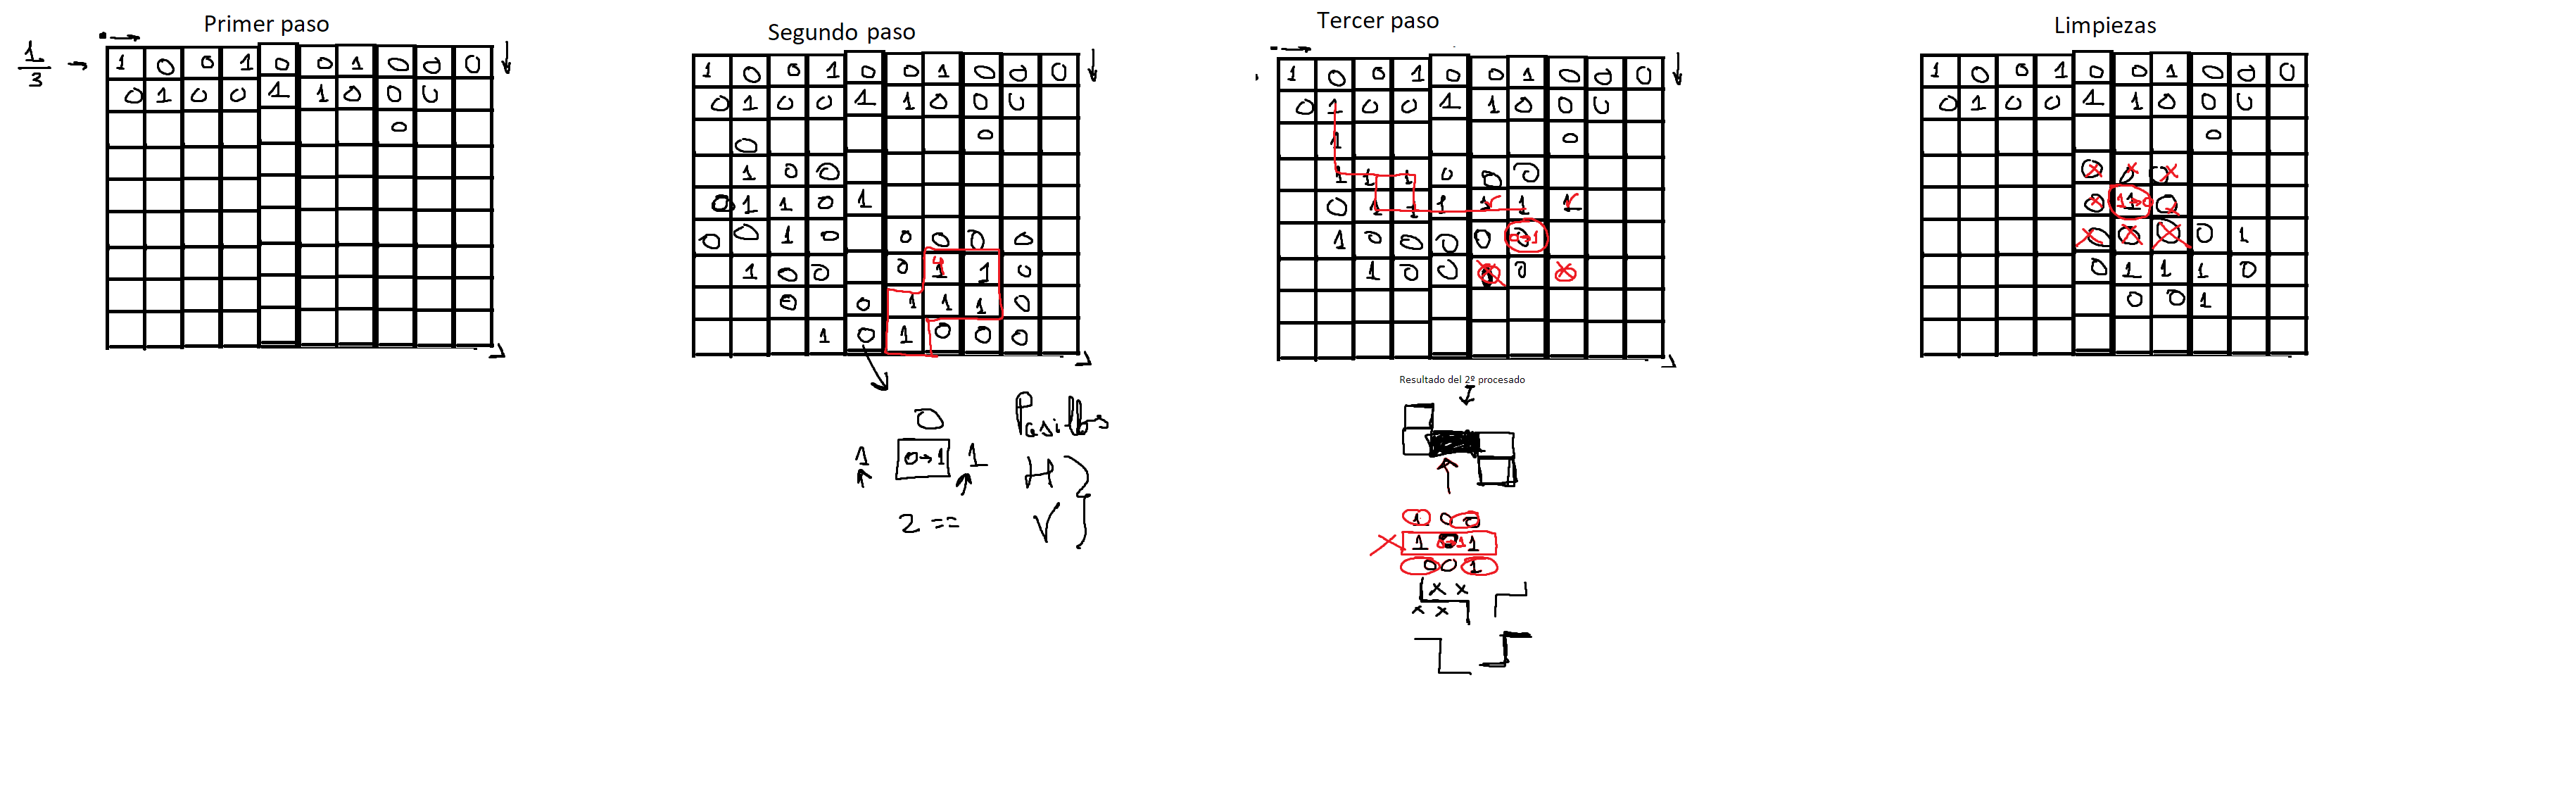 Primer paso
1
3
1 0 0 1 0 0 1 0 0 0
0 1 0 0 1 1 0 0 0
0
Segundo paso
1 0 0 1 0 0 1 0 0 0
0 1 0 0 1 1 0 0 0
0 0
1 0 0
0 1 1 0 1
0 0 1 0 0 0 0 0
1 0 0 0 1 1 0
0 0 1 1 1 0
1 0 1 0 0 0
0 Pasillos
1 0→1 1 H
2 == V
Tercer paso
1 0 0 1 0 0 1 0 0 0
0 1 0 0 1 1 0 0 0
1 0
1 1 1 0 0 0
0 1 1 1 1 1 1
1 0 0 0 0 0→1
1 0 0 0
Resultado del 2º procesado
1 0 0
1 0→1 1
0 0 1
x x
x x
Limpiezas
1 0 0 1 0 0 1 0 0 0
0 1 0 0 1 1 0 0 0
0
0 0 0
0 1→0 0
0 0 0 0 1
0 1 1 1 0
0 0 1